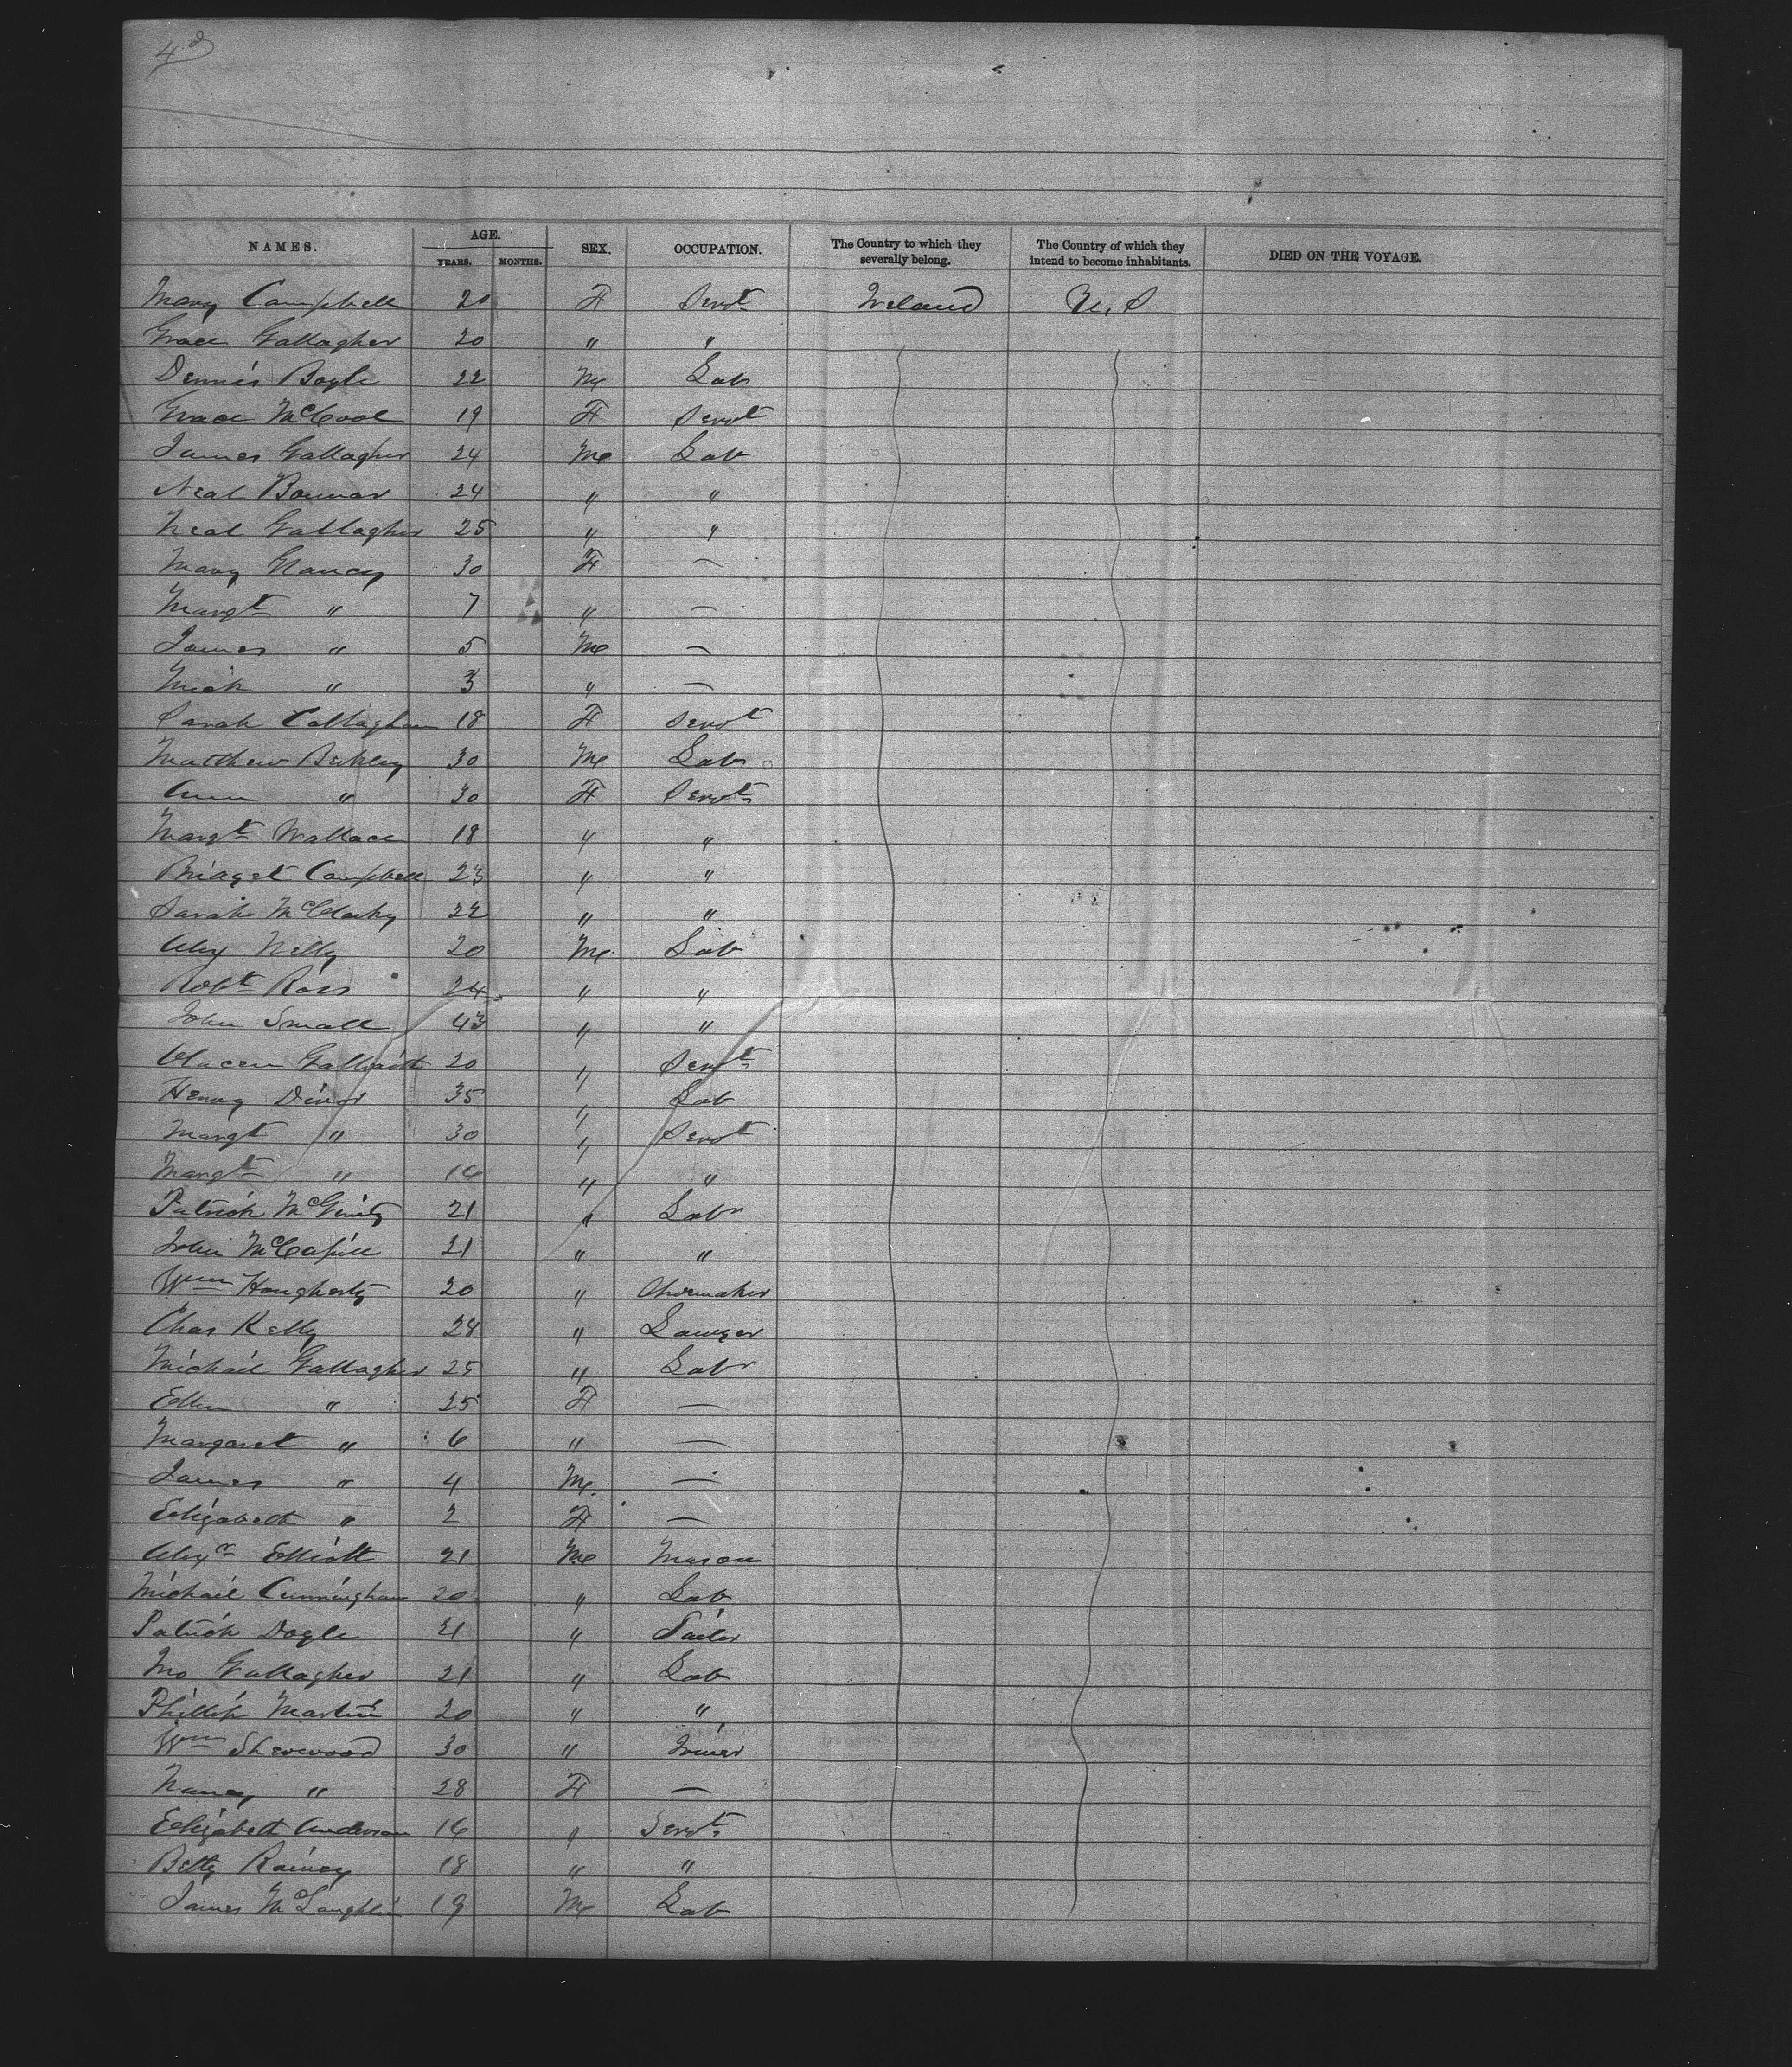 4d
NAMES. AGE. YEARS. MONTHS. SEX. OCCUPATION. The Country to which they severally belong. The Country of which they intend to become inhabitants. DIED ON THE VOYAGE.
Mary Campbell 20 F Servt Ireland U.S
Grace Gallagher 20 " "
Dennis Boyle 22 M Lab
Grace McCool 19 F Servt
James Gallagher 24 M Lab
Neal Bonnar 24 " "
Neal Gallagher 25 " "
Mary Clancy 30 F —
Margt " 7 " —
James " 5 M —
Mick " 3 " —
Sarah Callaghan 18 F Servt
Matthew 30 M Lab
Ann " 30 F Servt
Margt Wallace 18 " "
Bridget Campbell 23 " "
Sarah 22 " "
Alex 20 M Lab
Robt Ross 24 " "
John Small 43 " "
Galbraith 20 " Servt
Henry Diver 35 " Lab
Margt " 30 " Servt
Margt " 16 " "
Patrick McGinty 21 " Labr
John 21 " "
Wm 20 " Shoemaker
Chas Kelly 28 " Sawyer
Michail Gallagher 25 " Labr
Ellen " 25 F —
Margaret " 6 " —
James " 4 M. —
Elizabeth " 2 F —
Alexr Elliott 21 M Mason
Michail Cunningham 20 " Lab
Patrick Dogle 21 " Tailor
Jno Gallagher 21 " Lab
Phillip Martin 20 " "
Wm Sherwood 30 " Joiner
Nancy " 28 F —
Elizabeth Anderson 16 " Servt
Betty Rainey 18 " "
James McLaughlin 19 M Lab